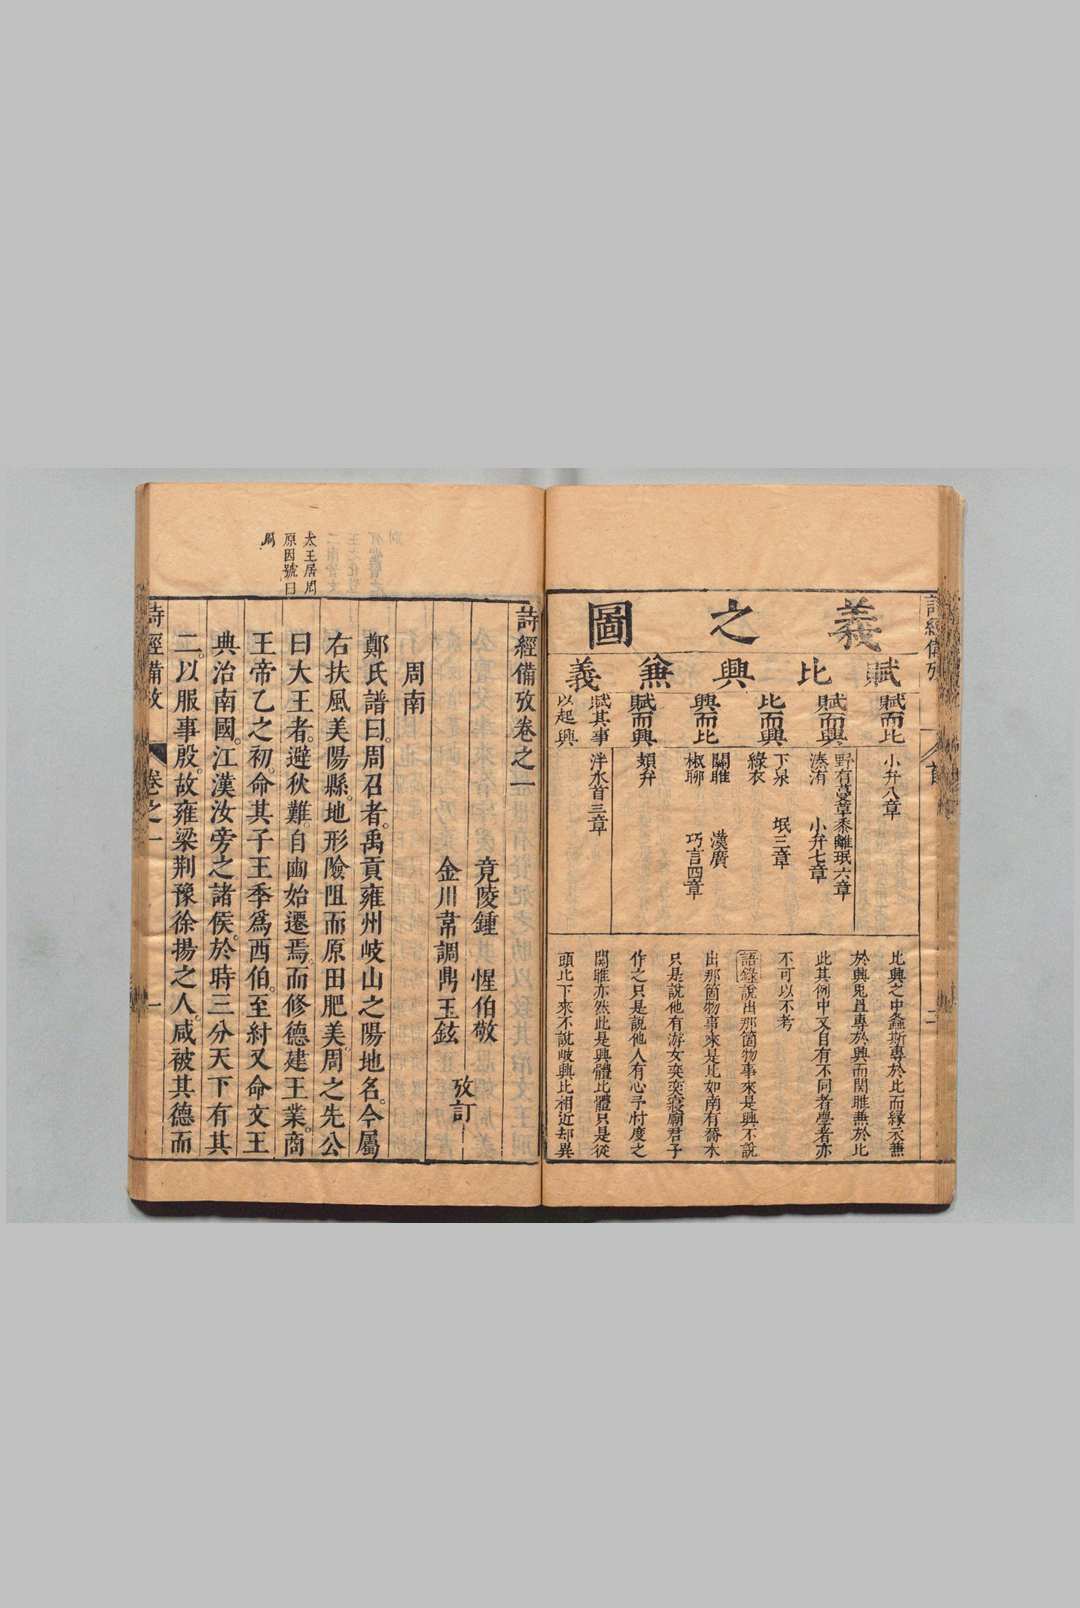 義之圖
賦比興兼義
賦而比
小弁八章
賦而興
野有蔓草黍離氓六章
溱洧 小弁七章
比而興
下泉 氓三章
綠衣
興而比
關雎 漢廣
椒聊 巧言四章
賦而興
頍弁
賦其事
以起興
泮水首三章
比興之中螽斯專於比而綠衣兼
於興兎罝專於興而関雎兼於比
此其例中又自有不同者學者亦
不可以不考
語錄說出那箇物事來是興不說
出那箇物事來是比如南有喬木
只是說他有游女奕奕寢廟君子
作之只是說他人有心予忖度之
関雎亦然此是興體比體只是從
頭比下來不說破興比相近却異
詩經備攷卷之一
竟陵鍾 惺伯敬
金川韋調鼎玉鉉
攷訂
周南
鄭氏譜曰。周召者。禹貢雍州岐山之陽地名。今屬
右扶風美陽縣。地形險阻而原田肥美。周之先公
曰大王者。避狄難。自豳始遷焉。而修德建王業。商
王帝乙之初。命其子王季爲西伯。至紂又命文王
典治南國。江漢汝旁之諸侯。於時三分天下有其
二。以服事殷。故雍梁荆豫徐揚之人。咸被其德而
太王居周
原因號曰
周
詩經備攷
卷之一
一